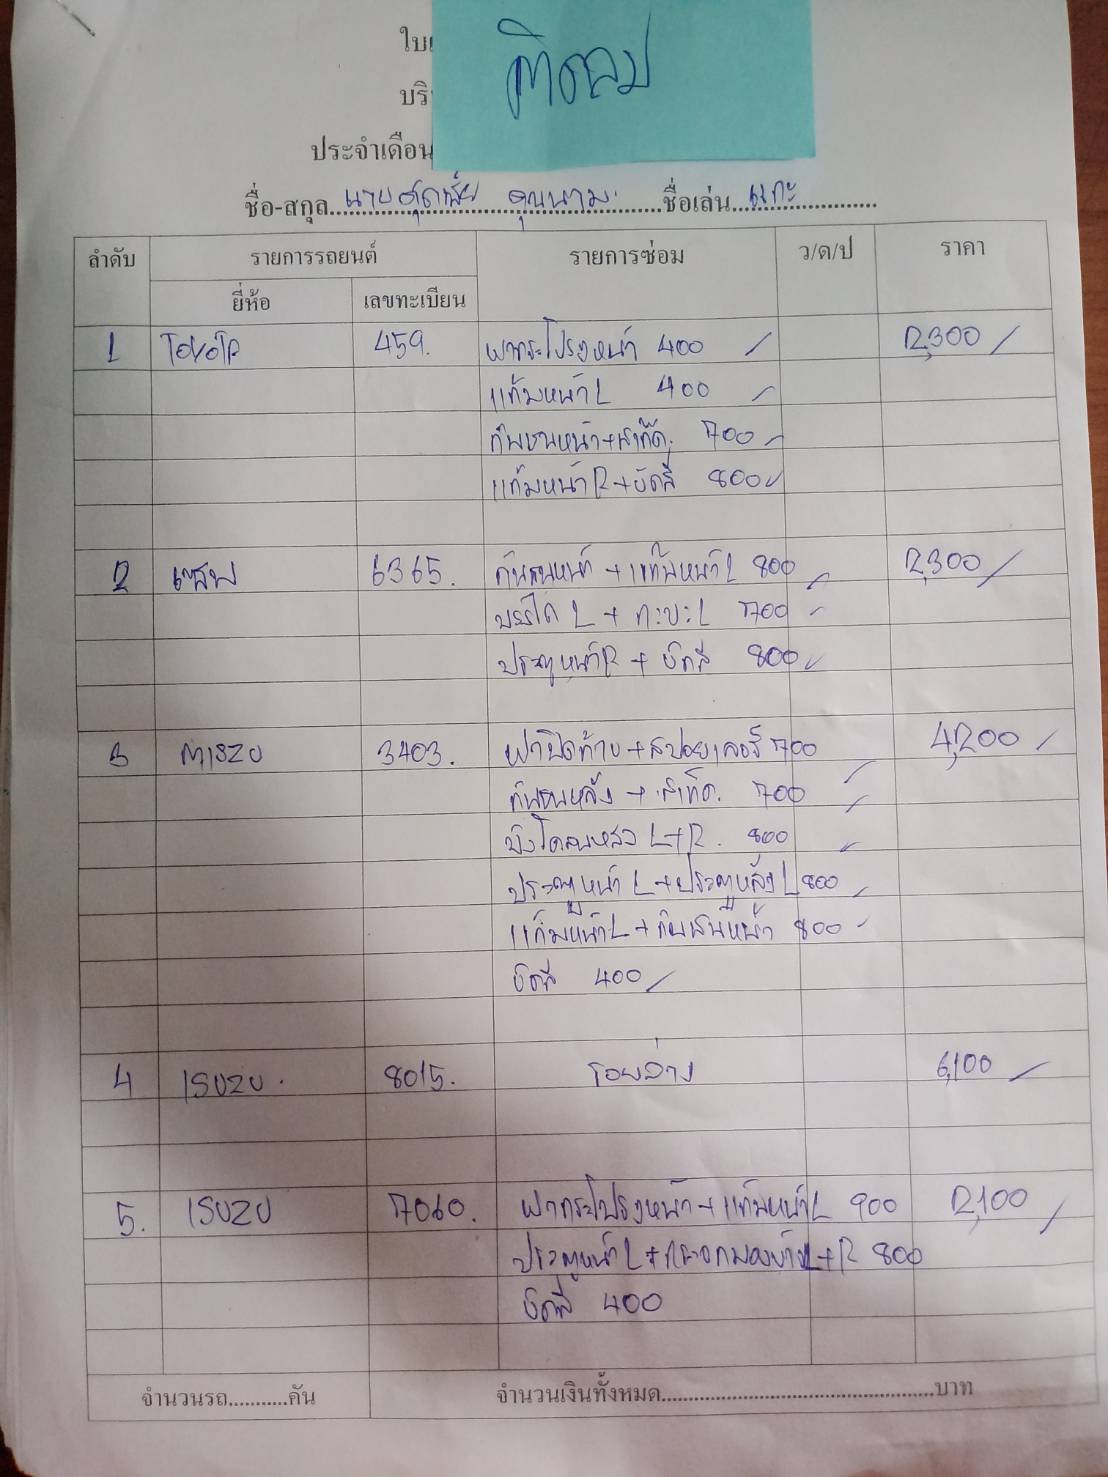 ใบเ
บริ
ประจำเดือน
ชื่อ-สกุล นาย ชื่อเล่น แกะ
ลำดับ รายการรถยนต์ รายการซ่อม ว/ด/ป ราคา
ยี่ห้อ เลขทะเบียน
1 TOYOTA 459. ฝากระโปรงหน้า 400 / 2,300 /
แก้มหน้า L 400 /
กันชนหน้า+สเก๊ต. 700 /
แก้มหน้า R+ขัดสี 800 /
2 เชฟ 6365. กันชนหน้า + แก้มหน้า L 800 / 2,300 /
บรรได L + กะบะ L 700 /
ประตูหน้า R + ขัดสี 800 /
3 MISZU 3403. ฝาปิดท้าย+สปอยเลอร์ 700 / 4,200 /
กันชนหลัง + สเก๊ต. 700 /
บังโคลนหลัง L+R. 800 /
ประตูหน้า L+ประตูหลัง L 800 /
แก้มหน้า L + กันชนหน้า 800 /
ขัดสี 400 /
4 ISUZU. 8015. รอบล่าง 6,100 /
5. ISUZU 7060. ฝากระโปรงหน้า+แก้มหน้า L 900 2,100 /
ประตูหน้า L+กระจกมองข้าง L+R 800
ขัดสี 400
จำนวนรถ...........คัน จำนวนเงินทั้งหมด..............................................บาท